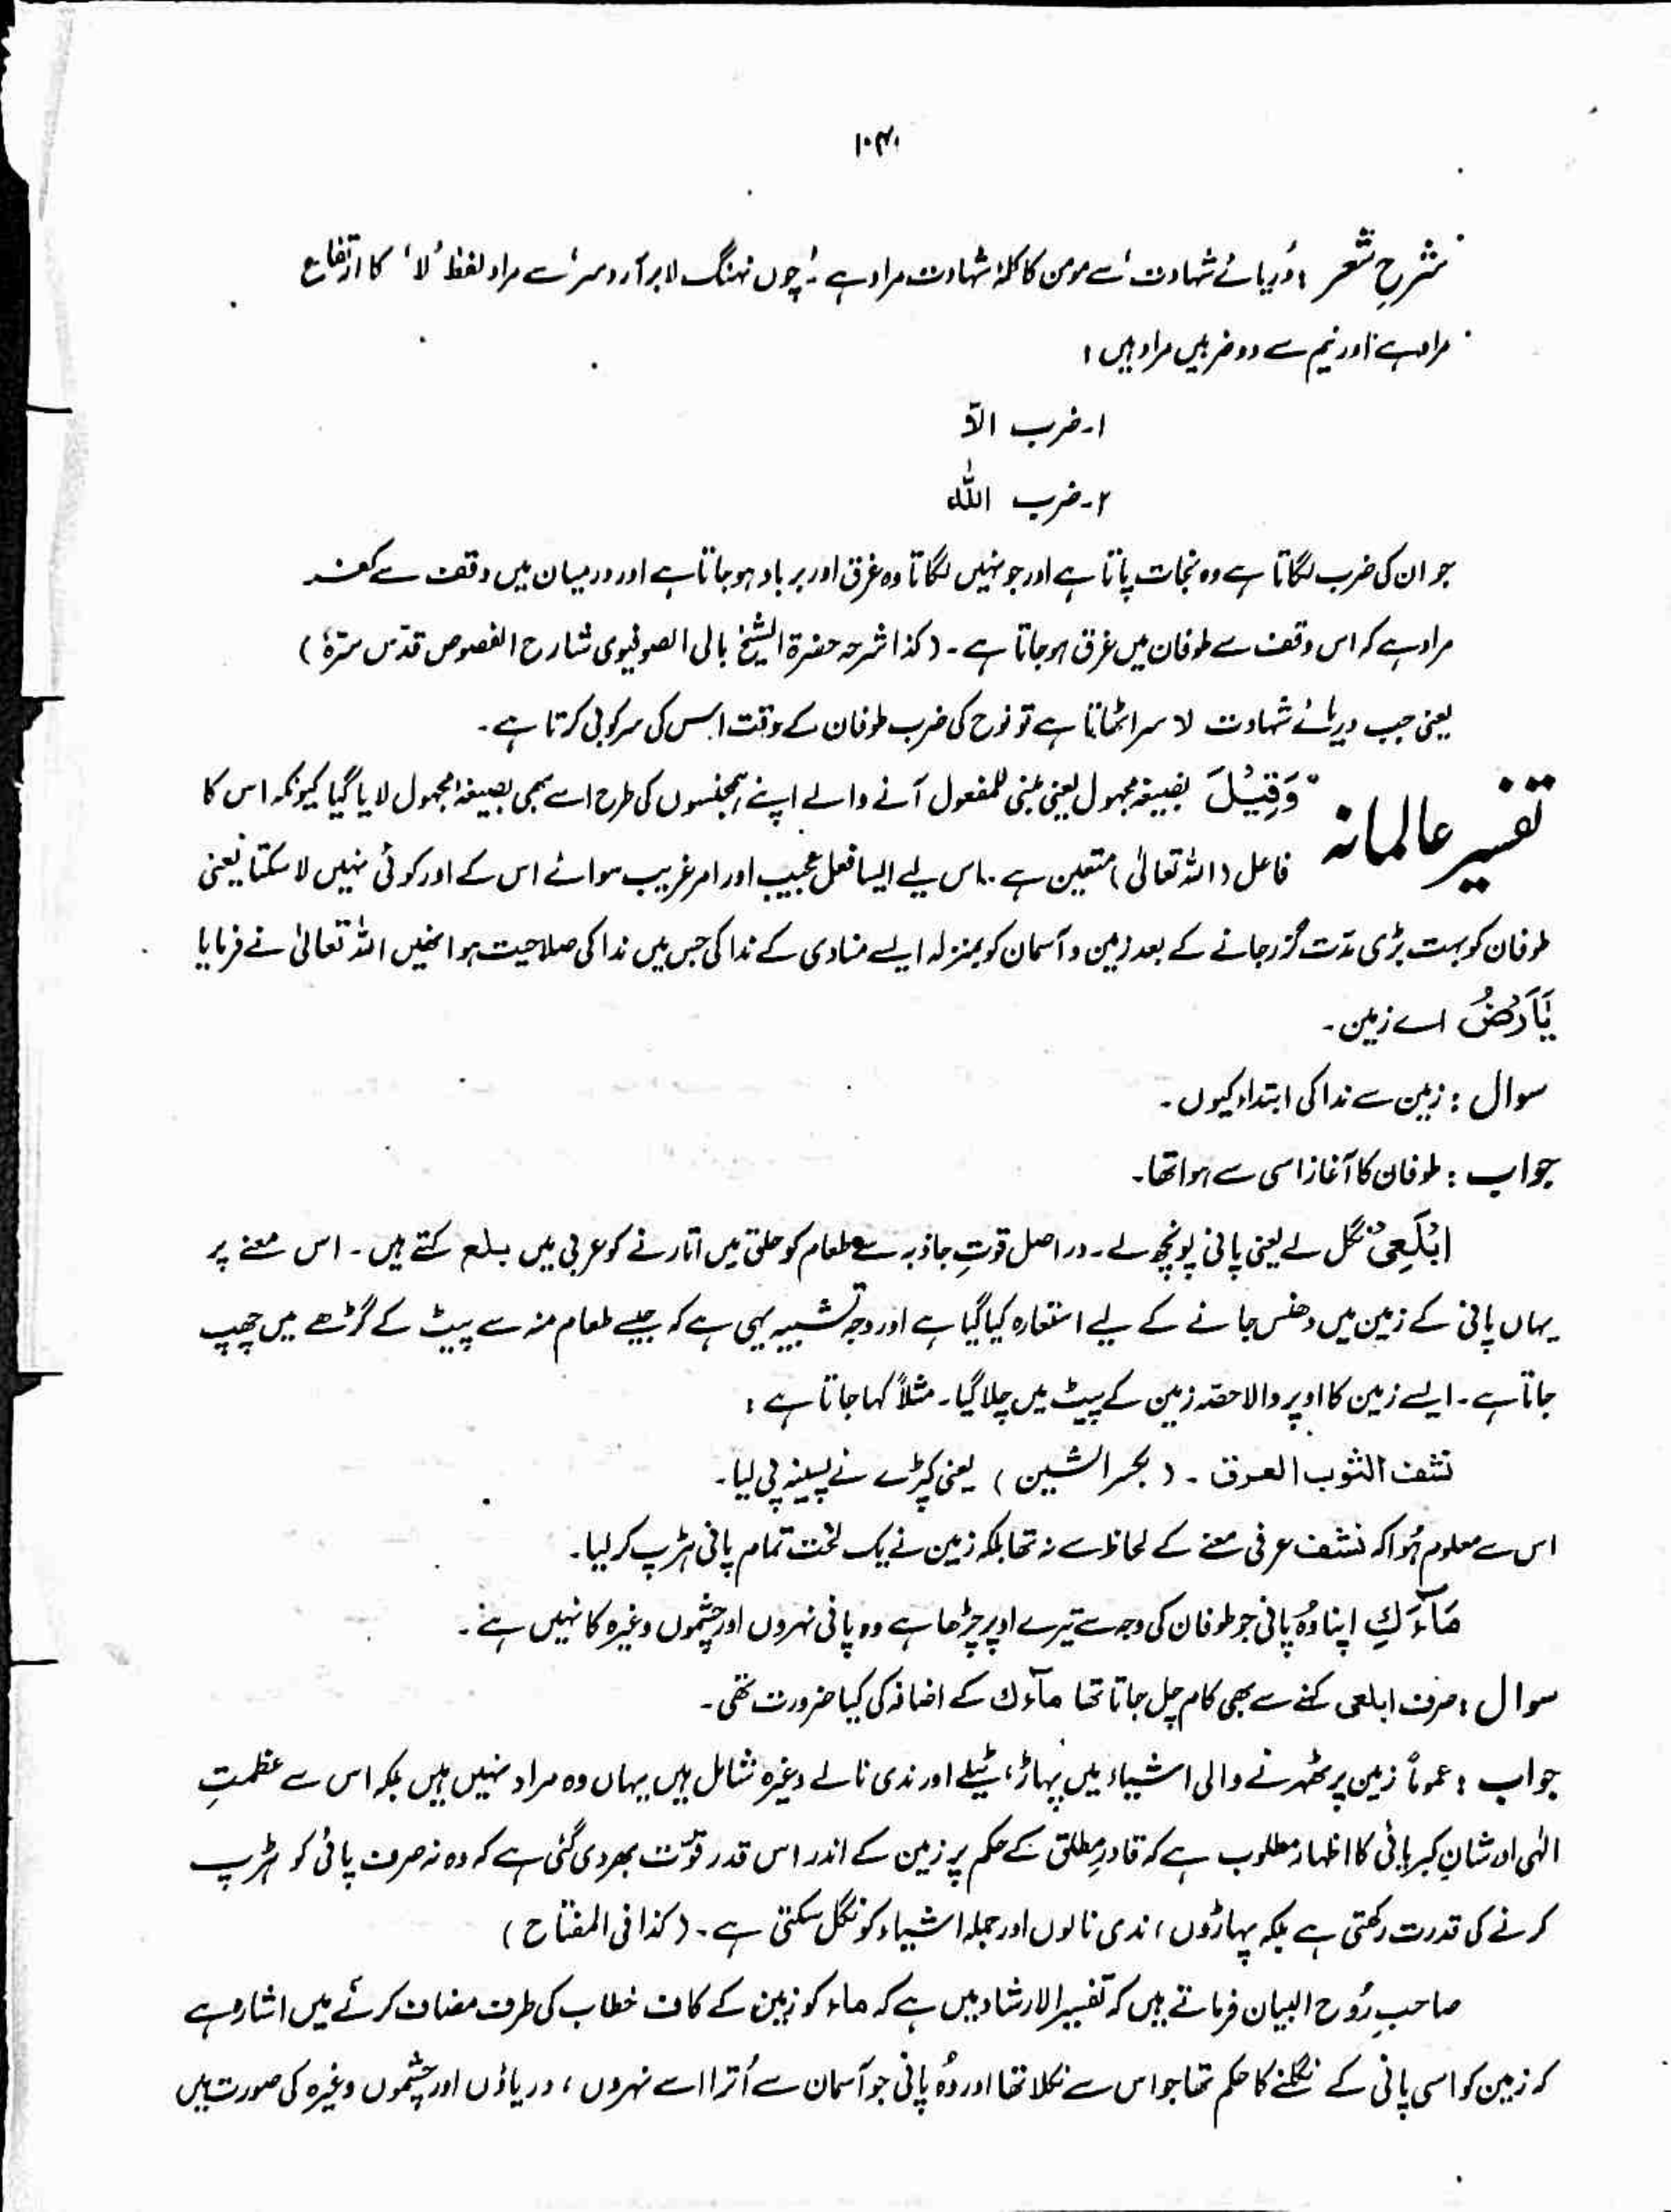 ۱۰۴۰
شرحِ شعر : ‘دریائے شہادت’ سے مومن کا کلمۂ شہادت مراد ہے ۔ ‘چوں نہنگ لا برآرد سر’ سے مراد لفظ ‘لا’ کا ارتفاع
مراد ہے اور نیم سے دو ضربیں مراد ہیں :
۱۔ ضرب الّا
۲۔ ضرب اللّٰہ
جو ان کی ضرب لگاتا ہے وہ نجات پاتا ہے اور جو نہیں لگاتا وہ غرق اور برباد ہو جاتا ہے اور درمیان میں وقف سے کفر
مراد ہے کہ اس وقف سے طوفان میں غرق ہو جاتا ہے ۔ (کذا شرحہ حضرۃ الشیخ بالی الصوفیوی شارح الفصوص قدّس سرّہٗ)
یعنی جب دریائے شہادت لا سر اٹھاتا ہے تو نوح کی ضرب طوفان کے وقت اس کی سرکوبی کرتا ہے ۔
تفسیر عالمانہ
وَقِیْلَ بصیغۂ مجہول یعنی مبنی للمفعول آنے والے اپنے ہمجنسوں کی طرح اسے بھی بصیغۂ مجہول لایا گیا کیونکہ اس کا
فاعل (اللہ تعالیٰ) متعین ہے ۔ اس لیے ایسا فعل عجیب اور امر غریب سوائے اس کے اور کوئی نہیں لا سکتا یعنی
طوفان کو بہت بڑی مدّت گزر جانے کے بعد زمین و آسمان کو بمنزلہ ایسے منادی کے ندا کی جس میں ندا کی صلاحیت ہو انھیں اللہ تعالیٰ نے فرمایا
یٰٓاَرْضُ اے زمین ۔
سوال : زمین سے ندا کی ابتداء کیوں ۔
جواب : طوفان کا آغاز اسی سے ہوا تھا ۔
ابْلَعِیْ نگل لے یعنی پانی پونچھ لے ۔ دراصل قوتِ جاذبہ سے طعام کو حلق میں اتارنے کو عربی میں بلع کہتے ہیں ۔ اس معنے پر
یہاں پانی کے زمین میں دھنس جانے کے لیے استعارہ کیا گیا ہے اور وجہ تشبیہ یہی ہے کہ جیسے طعام منہ سے پیٹ کے گڑھے میں چھپ
جاتا ہے ۔ ایسے زمین کا اوپر والا حصّہ زمین کے پیٹ میں چلا گیا ۔ مثلاً کہا جاتا ہے :
نشف الثوب العرق ۔ ( بکسر الشین ) یعنی کپڑے نے پسینہ پی لیا ۔
اس سے معلوم ہُوا کہ نشف عرفی معنے کے لحاظ سے نہ تھا بلکہ زمین نے یک لخت تمام پانی ہڑپ کر لیا ۔
مَآءَكِ اپنا وُہ پانی جو طوفان کی وجہ سے تیرے اوپر چڑھا ہے وہ پانی نہروں اور چشموں وغیرہ کا نہیں ہے ۔
سوال : صرف ابلعی کہنے سے بھی کام چل جاتا تھا مآءك کے اضافہ کی کیا ضرورت تھی ۔
جواب : عموماً زمین پر ٹھہرنے والی اشیاء میں پہاڑ، ٹیلے اور ندی نالے وغیرہ شامل ہیں یہاں وہ مراد نہیں ہیں بلکہ اس سے عظمتِ
الٰہی اور شانِ کبریائی کا اظہار مطلوب ہے کہ قادرِ مطلق کے حکم پر زمین کے اندر اس قدر قوّت بھر دی گئی ہے کہ وہ نہ صرف پانی کو ہڑپ
کرنے کی قدرت رکھتی ہے بلکہ پہاڑوں ، ندی نالوں اور جملہ اشیاء کو نگل سکتی ہے ۔ (کذا فی المفتاح)
صاحبِ رُوح البیان فرماتے ہیں کہ تفسیر الارشاد میں ہے کہ ماء کو زمین کے کاف خطاب کی طرف مضاف کرنے میں اشارہ ہے
کہ زمین کو اسی پانی کے نگلنے کا حکم تھا جو اس سے نکلا تھا اور وُہ پانی جو آسمان سے اُترا اسے نہروں ، دریاؤں اور چشموں وغیرہ کی صورت میں